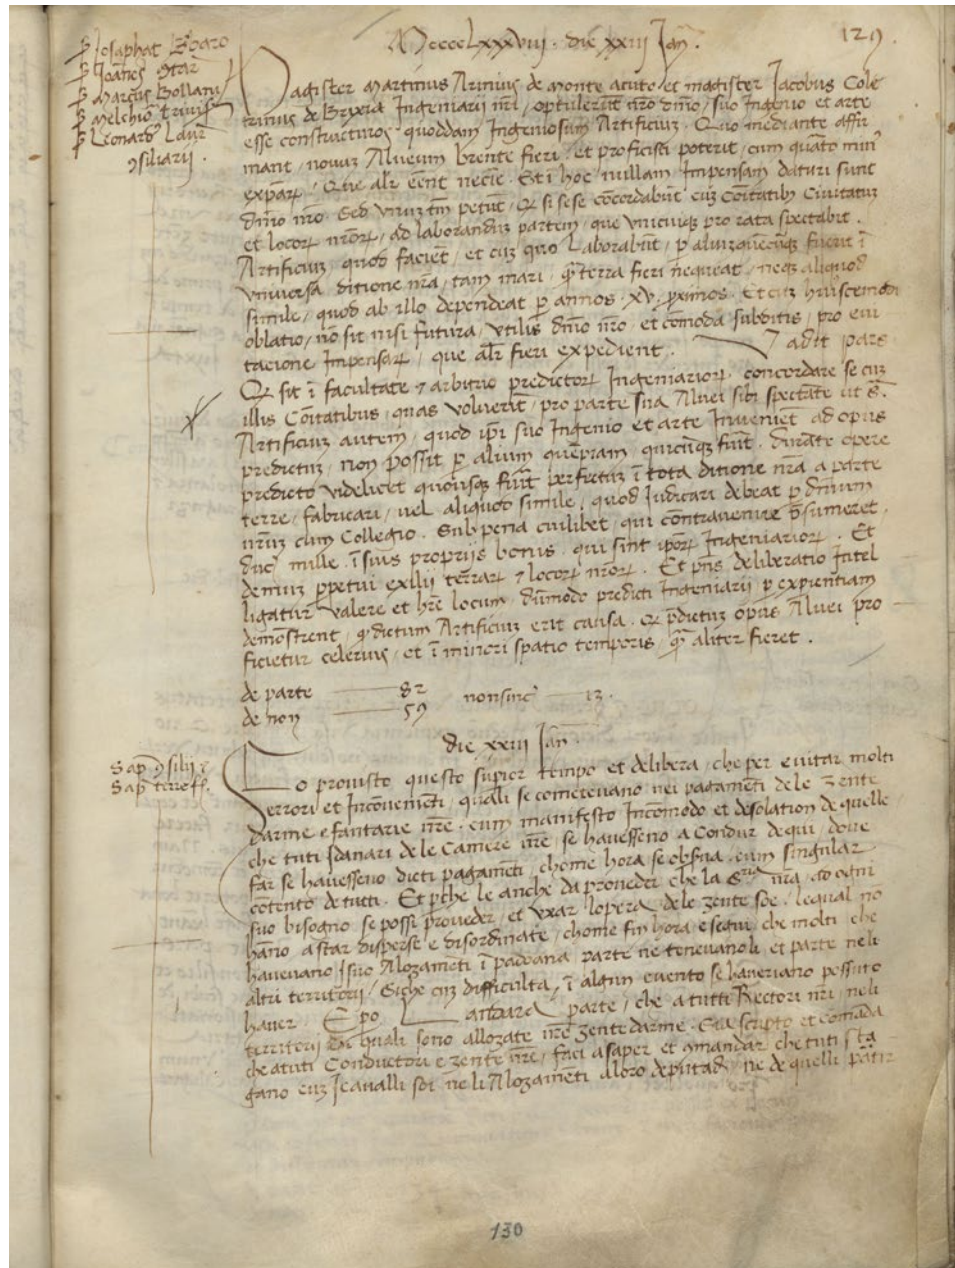 MccccLxxxviii. die xxiii Jan̄.
129.
ꝑ Josaphat Baro
ꝑ Joān̄es
ꝑ Marcus Bollani
ꝑ Melchio᷑ Trivis
ꝑ Leonard᷑ Laur̄
ↄsiliarii.
Magister Martinus Arinius de monte acuto et magister Jacobus Cole
trinus de Brixia Ingeniarii nr̄i, optulerūt nr̄o dn̄io, suo Ingenio et arte
esse constructuros quoddam Ingeniosum Artificiuʒ. Quo mediante affir
mant, novuʒ Alveum brente fieri, et proficisci poterit, cum quāto min᷑
expārꝝ, Que alr̄ eēnt neccīe. Et ī hoc nullam Impensam daturi sunt
dn̄io nr̄o. Sed unuʒ tm̄ petūt, Qꝫ si se se cōcordabūt cuʒ Cōitatibꝫ Civitatuʒ
et locorꝝ nr̄orꝝ, ad laboranduʒ partem, que unicuiqꝫ pro rata spectabit.
Artificiuʒ quod faciēt, et cuʒ quo Laborabūt, ꝑ aliuʒ quēcūqꝫ fuerit ī
universa ditione nr̄a, tam mari, qꝫ terra fieri nequeat, neqꝫ aliquod
simile, quod ab illo dependeat ꝑ annos .xv. ꝓximos. Et cuʒ huiuscemodi
oblatio, nō sit nisi futura, utilis dn̄io nr̄o, et cōmoda subditis, pro evi
tatione Impensarꝝ, que alr̄ fieri expedient. Vadit pars
Qꝫ sit ī facultate ⁊ arbitrio predictorꝝ Ingeniariorꝝ, concordare se cuʒ
illis Cōitatibus, quas volverīt, pro parte sua Alvei sibi spectāte ut s̄.
Artificiuʒ autem, quod ip̄i suo Ingenio et arte Inveniēt ad opus
predictuʒ, non possit ꝑ alium quēpiam, quicūqꝫ fuīt. durāte opere
predicto videlicet quousqꝫ fuīt perfectuʒ ī tota ditione nr̄a a parte
terre, fabricari, vel aliquod simile, quod Judicari debeat ꝑ dn̄ium
nr̄uʒ cum Collegio. Sub pena cuilibet, qui contravenire p̄sumeret,
duc᷑ mille. ī suis proprijs bonis. qui sint ip̄orꝝ Ingeniariorꝝ. Et
demuʒ ꝑpetui exilii terrarꝝ ⁊ locorꝝ nr̄orꝝ. Et pn̄s deliberatio Intel
ligatur valere et hr̄e locum, dūmodo predicti Ingeniarii ꝑ expientiam
demostrent, qꝫ dictum Artificiuʒ erit causa. Qꝫ p̄dictuʒ opus Alvei pro
ficietur celerius, et ī minori spatio temporis, qꝫ aliter fieret.
de parte — 82 non sinc̄ — 13.
de non — 59
die xxiii Jan̄.
Sap̄ ↄsilii ⁊
Sap̄ terre f᷑.
Fo provisto questo sup̄ior tempo et delibera, che per evitar molti
errori et Incōvenienti, quali se cometevano nei pagamēti dele Zente
darme e fantarie nr̄e. cum manifesto Incōmodo et desolation de quelle
che tuti i danari de le Camere nr̄e, se havesseno a Condur de qui, dove
far se havesseno dicti pagamēti, chome hora se obs̄va, cum singular
cōtento de tutti. Et ꝑche le anche da proveder che la S.ria nr̄a, ad ogni
suo bisogno se possi proveder, et Uxar lopera dele zente soe, lequal nō
hāno a star disperse e disordinate, chome fin hora e segui, che molti che
havevano i suo Alozamēti ī padoana parte ne tenevano li et parte neli
altri territorij, Siche cuʒ difficulta, ī algun evento se haveriano possuto
haver. E ꝑo Landara parte, che a tutti Rectori nr̄i neli
territorij di quali sono allozate nr̄e zente darme. Sia scripto et comāda
che a tuti Conductori e zente nr̄e, faci a saper et comandar che tuti sta
gano cuʒ i cavalli soi neli Alozamēti aloro deputadi, ne de quelli partir
130